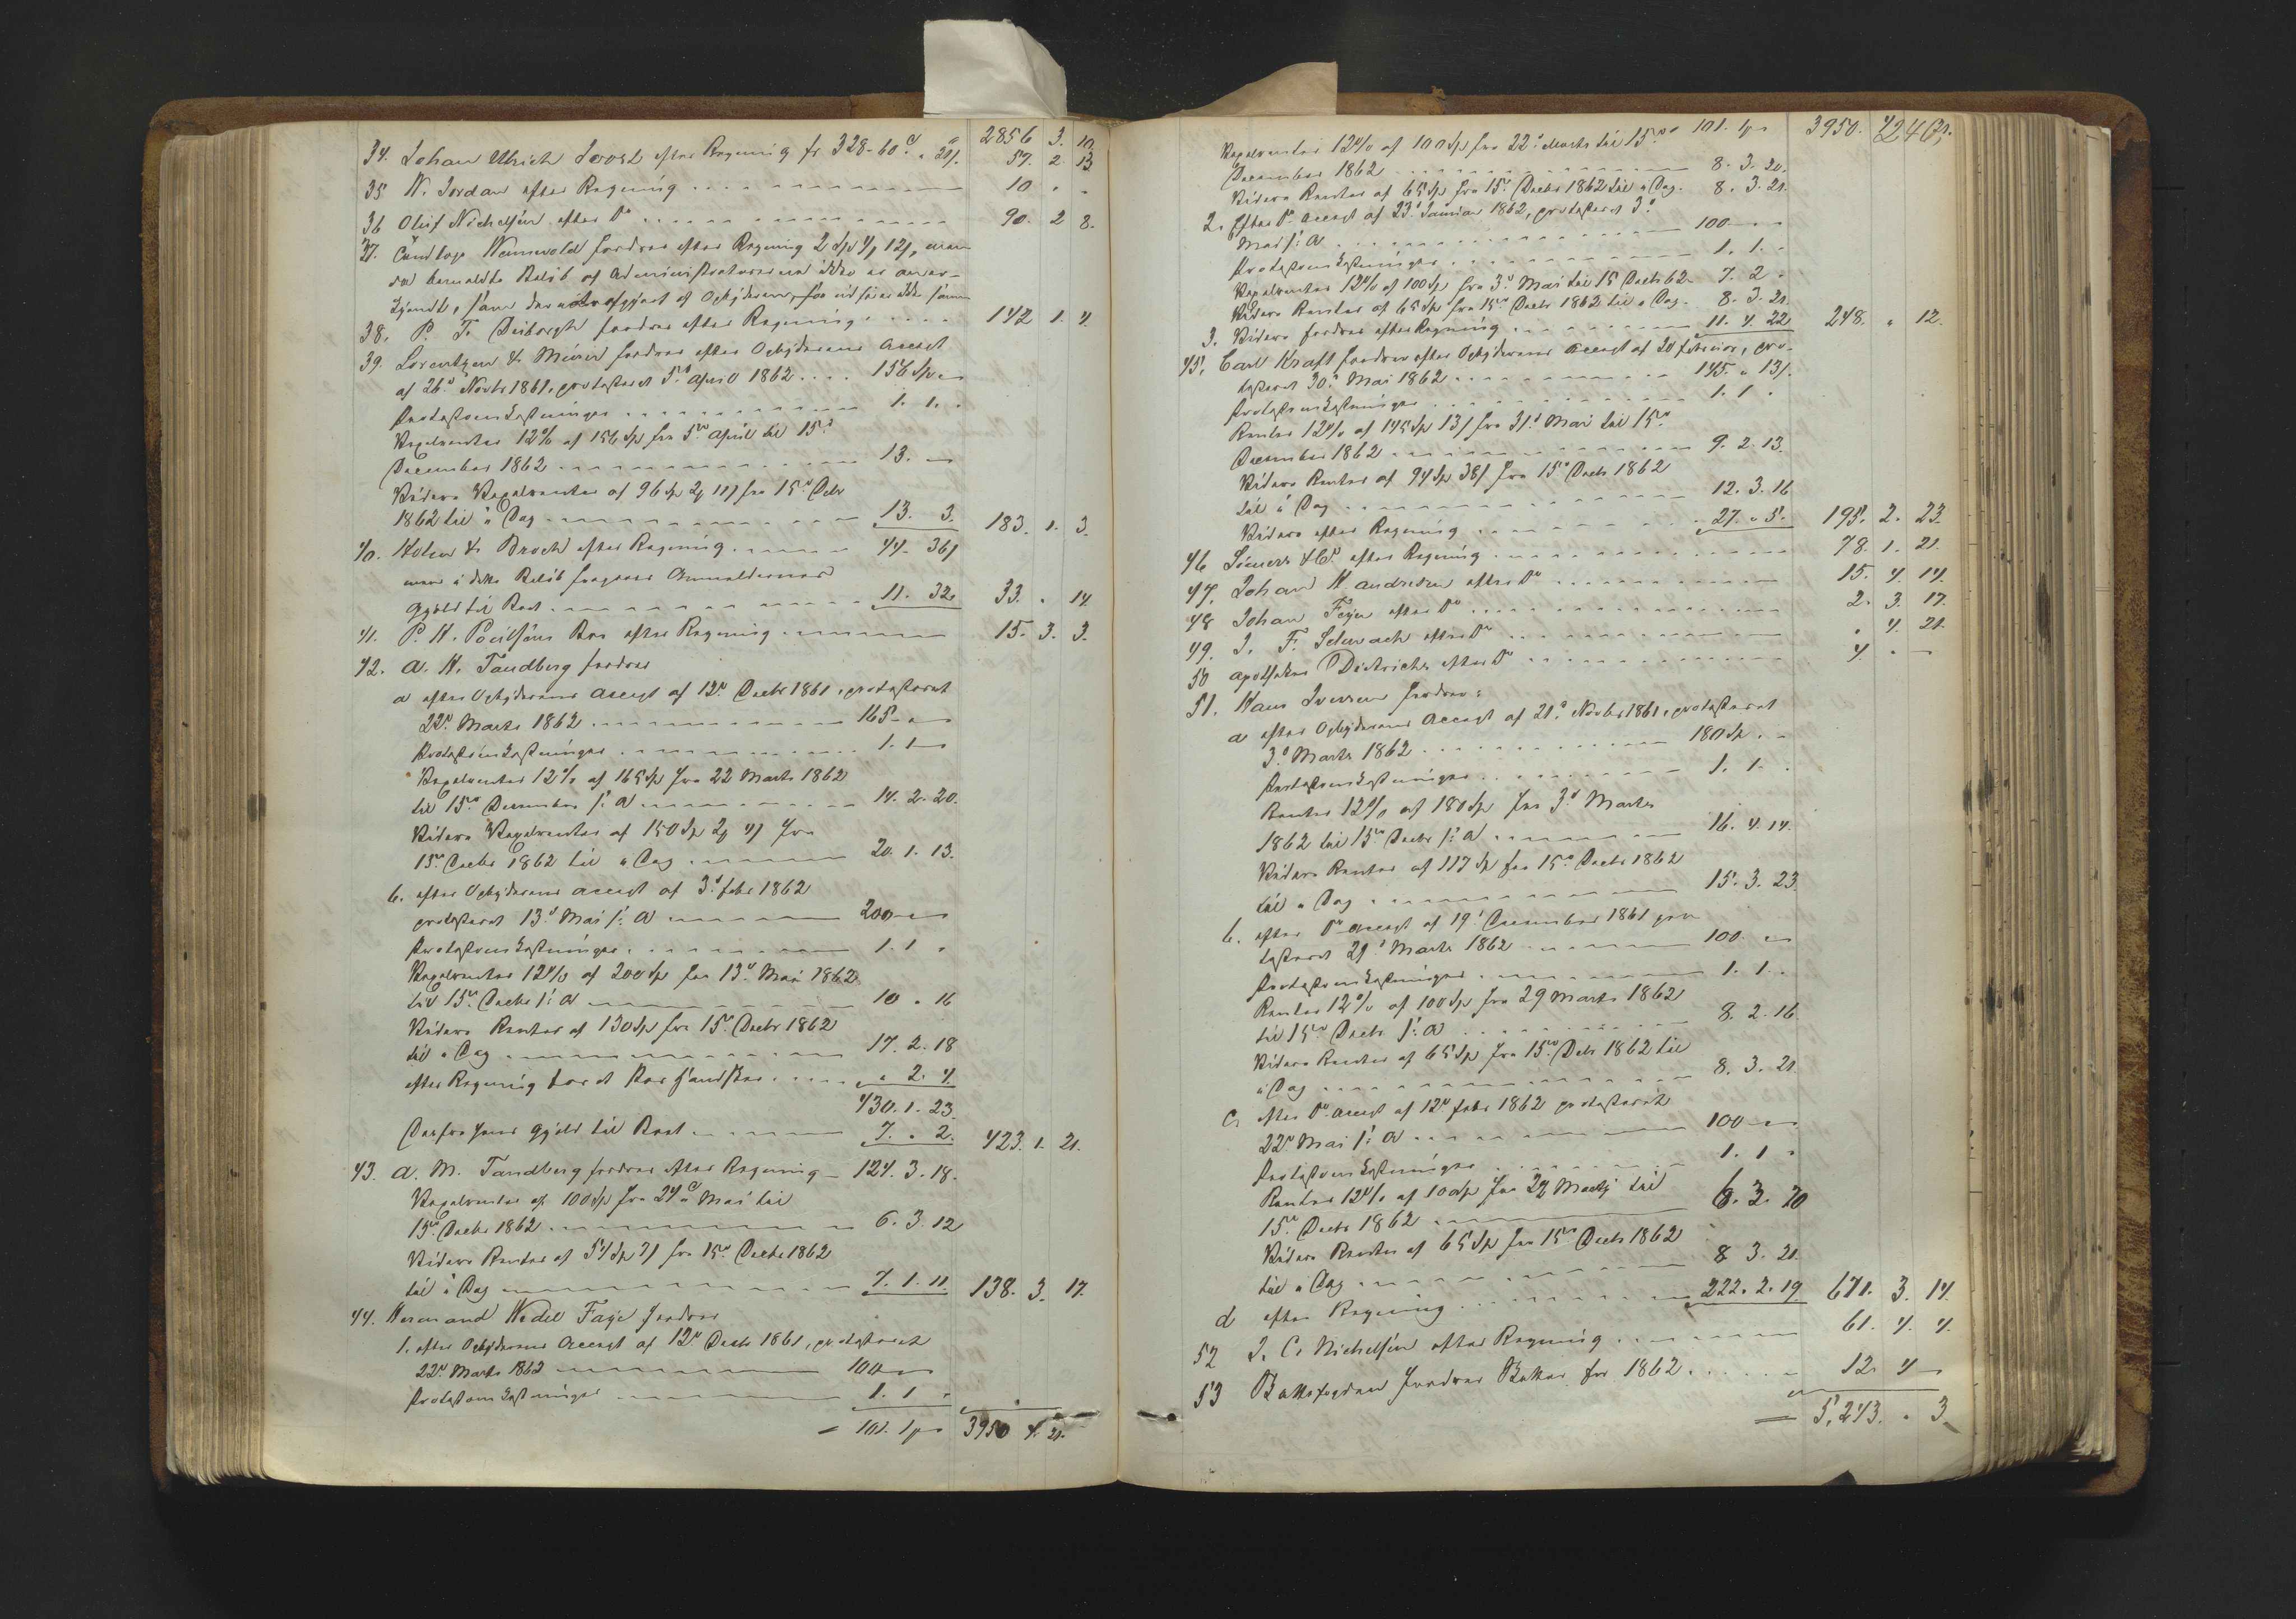 2856 3. 10.
34. Johan Ulrich Joost efter Regning fr 328-60 c. a 21 ƒ. 57. 2. 13
35 N. Jordan efter Regning 10 - -
36 Oluf Nichelsen efter Do 90. 2 8.
37. Cand. fordrer efter Regning 2 Spd 4 12 ƒ, men
da bemeldte Beløb af Administratorerne ikke er aner-
kjendt, som
38. P. T. fordrer efter Regning 142 1. 4.
39. Lorentzen & fordrer efter Opbyderens Accept
af 26d Novbr 1861, protesteret 5d April 1862 156 Sp -
Protestomkostninger 1. 1. -
Vexelrenter 12% af 156 Sp fra 5te April til 15d
December 1862 13. -
Videre Vexelrenter af 96 Sp 2 11 ƒ fra 15de Decbr
1862 til i Dag 13. 3. 183. 1. 3.
40. Holm & Broch efter Regning 44. 36 ƒ
men i dette Beløb fragaaer Anmeldernes
Gjæld til Boet 11. 32. 33. - 14.
41. P. H. Poulsens Bo efter Regning 15. 3. 3.
42. A. H. Tandberg fordrer
a efter Opbyderens Accept af 12te Decbr 1861, protesteret
22de Marts 1862 165 - -
Protestomkostninger 1. 1 -
Vexelrenter 12% af 165 Sp fra 22 Marts 1862
til 15de December s: A 14. 2. 20.
Videre Vexelrenter af 150 Sp 2 4 ƒ fra
15de Decbr 1862 til i Dag 20. 1. 13.
b. efter Opbyderens Accept af 3d Febr 1862
protesteret 13d Mai s: A 200 - -
Protestomkostninger 1. 1 -
Vexelrenter 12% af 200 Sp fra 13d Mai 1862
til 15de Decbr s: A 10 - 16
Videre Renter af 130 Sp fra 15de Decbr 1862
til i Dag 17. 2. 18
efter Regning - 2. 4.
430. 1. 23.
Derfra hans Gjæld til Boet 7. - 2. 423. 1. 21.
43. A. M. Tandberg fordrer efter Regning 124. 3. 18.
Vexelrenter af 100 Sp fra 24d Mai til
15de Decbr 1862 6. 3. 12
Videre Renter af 54 Sp 7 ƒ fra 15de Decbr 1862
til i Dag 7. 1. 11. 138. 3. 17.
44. Herman Wedel Faye fordrer
1. efter Opbyderens Accept af 12te Decbr 1861, protesteret
22de Marts 1862 100 -
Protestomkostninger 1. 1 -
101. 1 3950 4. 21.
101. 1 3950. 4. 21.
246.
Vexelrenter 12% af 100 Sp fra 22d Marts til 15de
December 1862 8. 3. 20.
Videre Renter af 65 Sp fra 15de Decbr 1862 til i Dag. 8. 3. 21.
2. Efter Do Accept af 23d Januar 1862, protesteret 3d
Mai s: A 100 - -
Protestomkostninger 1. 1. -
Vexelrenter 12% af 100 Sp fra 3d Mai til 15 Decbr 62 7. 2 -
Videre Renter af 65 Sp fra 15de Decbr 1862 til i Dag. 8. 3. 21.
3. Videre fordres efter Regning 11. 4. 22 248. - 12.
45. Carl Kraft fordrer efter Opbyderens Accept af 20 Februar, pro-
testeret 30d Mai 1862 145. - 13 ƒ.
Protestomkostninger 1. 1 -
Renter 12% af 145 Sp 13 ƒ fra 31d Mai til 15de
December 1862 9. 2. 13.
Videre Renter af 94 Sp 38 ƒ fra 15de Decbr 1862
til i Dag 12. 3. 16
Videre efter Regning 27. - 5. 195. 2. 23.
46 & Co efter Regning 78. 1. 21.
47. Johan H. Andresen efter Do 15. 4. 14.
48 Johan Faye efter Do 2. 3. 17.
49. J. F. efter Do - 4. 21.
50 Apotheker Dietrichs efter Do 4. - -
51. Hans Iversen fordrer:
a efter Opbyderens Accept af 21d Novbr 1861, protesteret
3d Marts 1862 180 Sp - -
Protestomkostninger 1. 1. -
Renter 12% af 180 Sp fra 3d Marts
1862 til 15de Decbr s: A 16. 4. 14.
Videre Renter af 117 Sp fra 15de Decbr 1862
til i Dag 15. 3. 23.
b. efter Do Accept af 19d December 1861 pro-
testeret 29d Marts 1862 100. -
Protestomkostninger 1. 1. -
Renter 12% af 100 Sp fra 29 Marts 1862
til 15de Decbr s: A 8. 2. 16
Videre Renter af 65 Sp fra 15de Decbr 1862 til
i Dag 8. 3. 21
c, efter Do Accept af 12te Febr 1862 protesteret
22de Mai s: A 100 - -
Protestomkostninger 1. 1 -
Renter 12% af 100 Sp fra til
15de Decbr 1862 6. 3. 20
Videre Renter af 65 Sp fra 15de Decbr 1862
til i Dag 8 3. 21.
d efter Regning 222. 2. 19 671. 3. 14.
52 J. C. Nichelsen efter Regning 61. 4. 4.
53 fordrer for 1862 12. 4 -
5,243. - 3